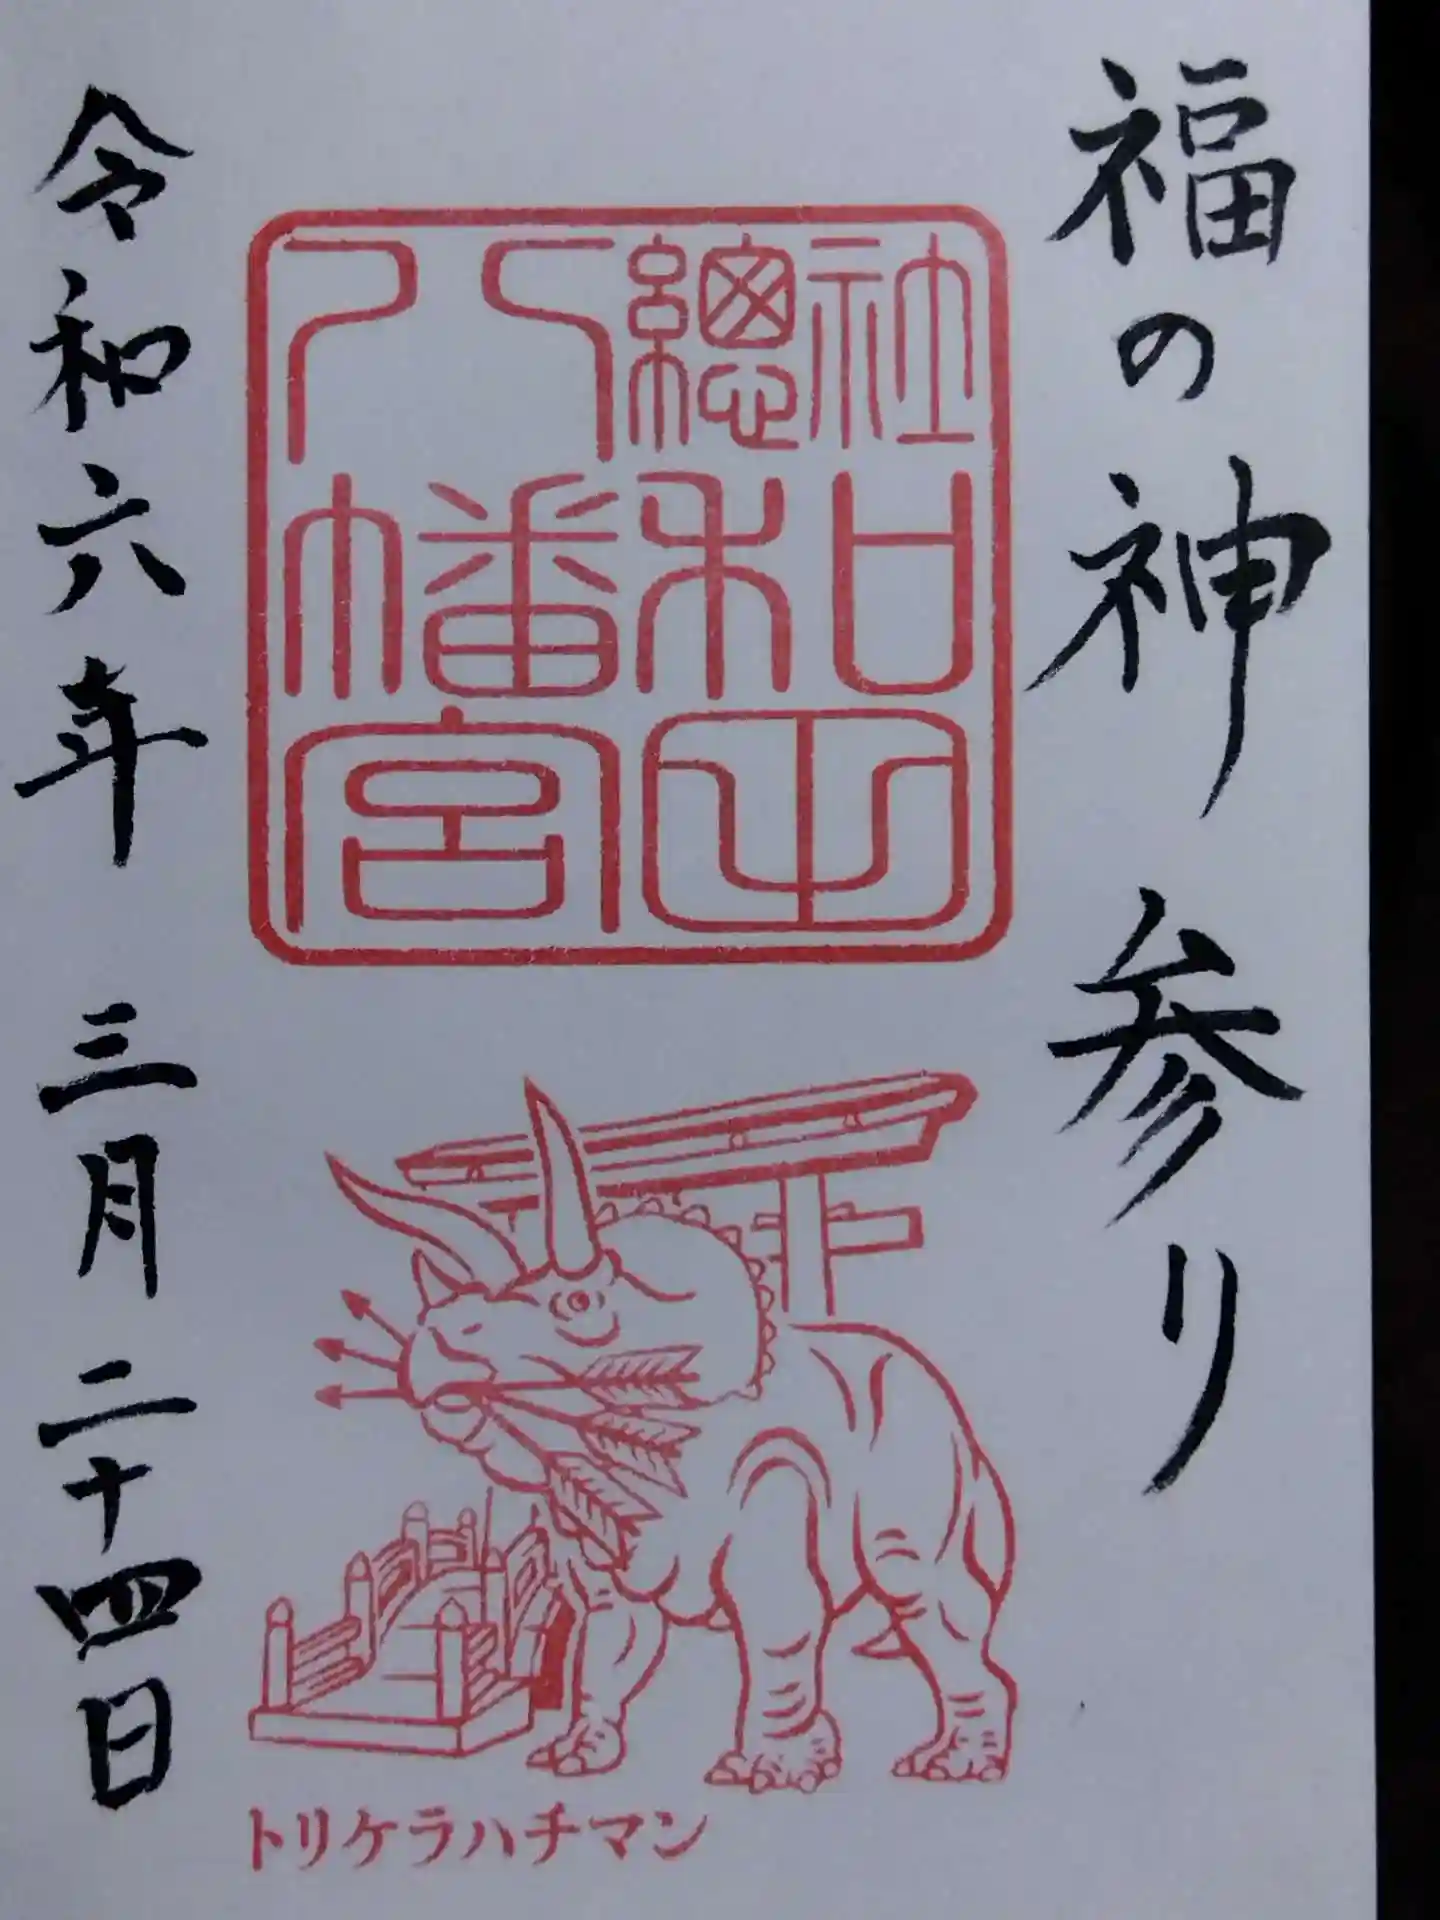 福の神参り
總社
和田
八幡宮
令和六年 三月二十四日
トリケラハチマン